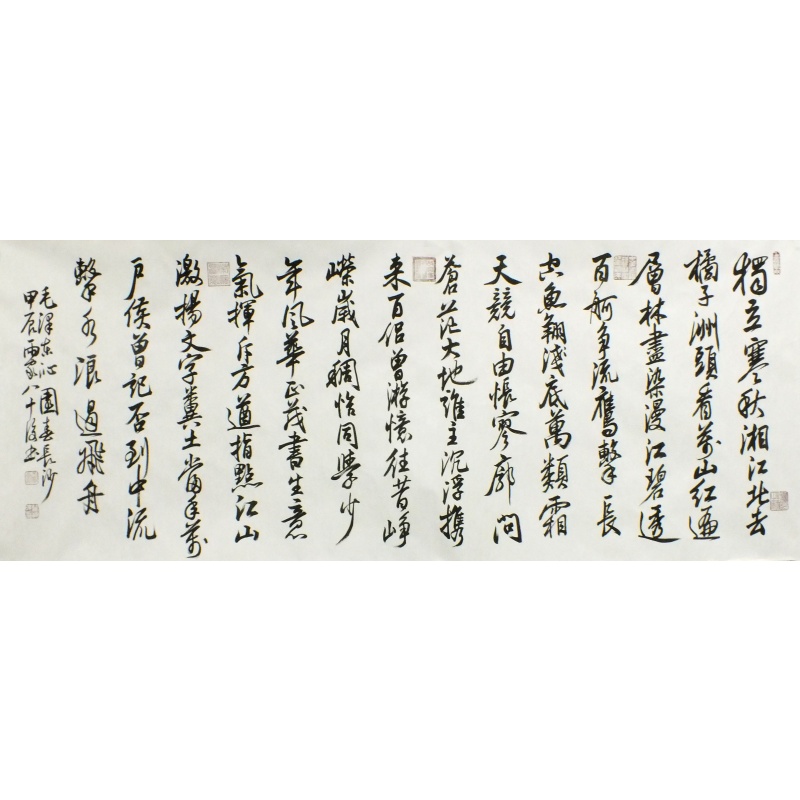 獨立寒秋湘江北去
橘子洲頭看萬山紅遍
層林盡染漫江碧透
百舸争流鷹擊長
空魚翔淺底萬類霜
天競自由悵寥廓問
蒼茫大地誰主沉浮携
来百侣曾游憶往昔崢
嶸歲月稠恰同學少
年風華正茂書生意
氣揮斥方遒指點江山
激揚文字糞土當年萬
户侯曾記否到中流
擊水浪遏飛舟
毛澤東沁園春長沙
甲辰雨八十後书